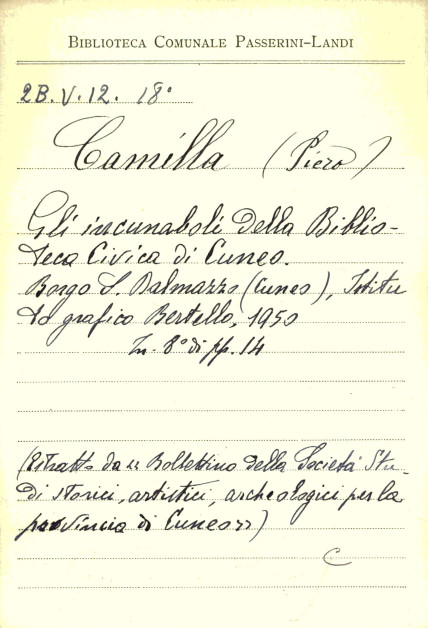 BIBLIOTECA COMUNALE PASSERINI-LANDI
2B.V.12. 18°
Camilla (Piero)
Gli incunaboli della Biblio-
teca Civica di Cuneo.
Borgo S. Dalmazzo (Cuneo), Istitu
to grafico Bertello, 1950
In 8° di pp. 14
(Estratto da "Bollettino della Società Stu-
di storici, artistici, archeologici per la
provincia di Cuneo")
C